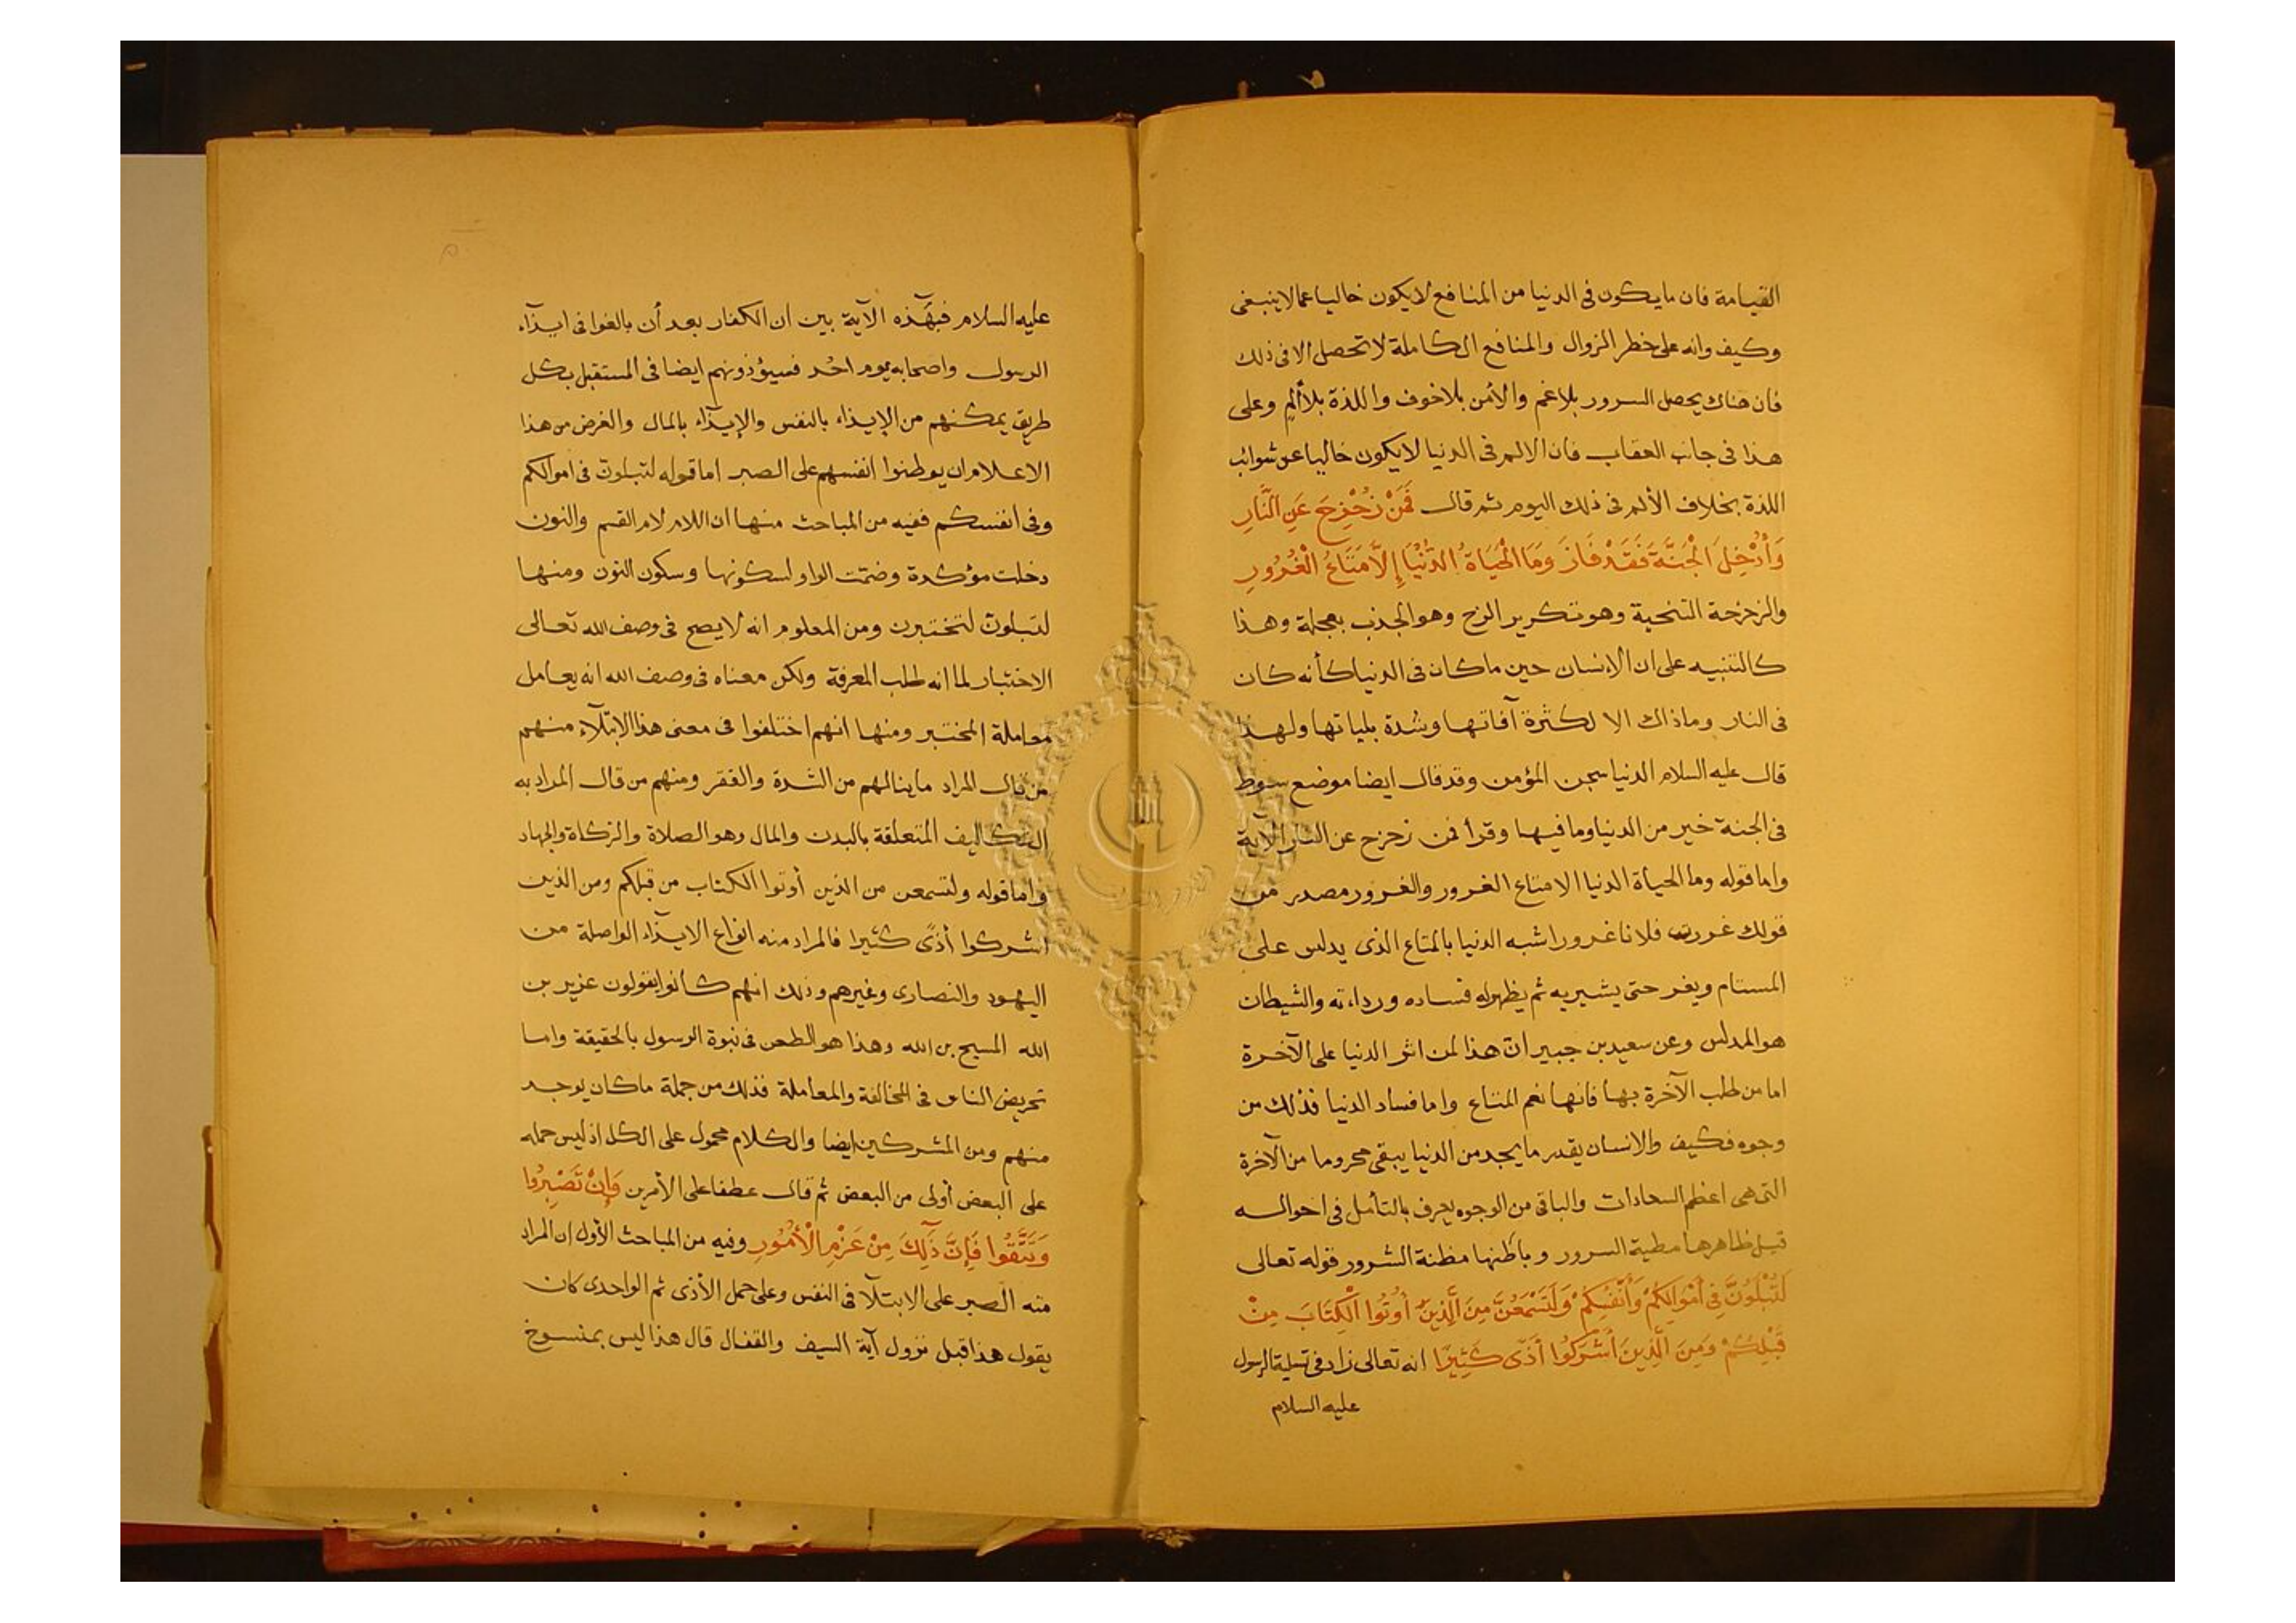 القيامة فان ما يكون فى الدنيا من المنافع لايكون خاليا عمالا ينبغى
وكيف وانه على خطر الزوال والمنافع الكاملة لا تحصل الا فى ذلك
فان هناك يحصل السرور بلا غم والأمن بلا خوف واللذة بلا ألم وعلى
هذا فى جانب العقاب فان الالم فى الدنيا لايكون خاليا عن شوائب
اللذة بخلاف الألم فى ذلك اليوم ثم قال فَمَنْ زُحْزِحَ عَنِ النَّارِ
وَأُدْخِلَ الْجَنَّةَ فَقَدْ فَازَ وَمَا الْحَيَاةُ الدُّنْيَا إِلَّا مَتَاعُ الْغُرُورِ
والزحزحة التنحية وهو تكرير الزح وهو الجذب بعجلة وهذا
كالتنبيه على ان الانسان حين ما كان فى الدنيا كأنه كان
فى النار وماذاك الا لكثرة آفاتها وشدة بلياتها ولهذا
قال عليه السلام الدنيا سجن المؤمن وقد قال ايضا موضع سوط
فى الجنة خير من الدنيا وما فيها وقرأ فمن زحزح عن النار الآية
واما قوله وما الحياة الدنيا الا متاع الغرور والغرور مصدر من
قولك غررت فلانا غرورا شبه الدنيا بالمتاع الذى يدلس على
المستام ويغر حتى يشيريه ثم يظهر له فساده ورداءته والشيطان
هو المدلس وعن سعيد بن جبير انّ هذا لمن اثر الدنيا على الآخرة
اما من طلب الآخرة بها فانها نعم المتاع واما فساد الدنيا فذلك من
وجوه فكيف والانسان يقدر ما يجد من الدنيا يبقى محروما من الآخرة
التى هى اعظم السعادات والباقى من الوجوه يعرف بالتأمل فى احواله
قيل ظاهرها مطية السرور وباطنها مظنة الشرور قوله تعالى
لَتُبْلَوُنَّ فِى أَمْوَالِكُمْ وَأَنْفُسِكُمْ وَلَتَسْمَعُنَّ مِنَ الَّذِينَ أُوتُوا الْكِتَابَ مِنْ
قَبْلِكُمْ وَمِنَ الَّذِينَ أَشْرَكُوا أَذًى كَثِيرًا انه تعالى زاد فى تسلية الرسول
عليه السلام
عليه السلام فبهذه الآية بين ان الكفار بعد أن بالغوا فى ايذآء
الرسول واصحابه يوم احد فسيؤذونهم ايضا فى المستقبل بكل
طريق يمكنهم من الإيذاء بالنفس والإيذآء بالمال والغرض من هذا
الاعلام ان يوطنوا انفسهم على الصبر اما قوله لتبلونّ فى اموالكم
وفى انفسكم ففيه من المباحث منها ان اللام لام القسم والنون
دخلت مؤكدة وضمت الواو لسكونها وسكون النون ومنها
لتبلونّ لتختبرن ومن المعلوم انه لا يصح فى وصف الله تعالى
الاختبار لما انه طلب المعرفة ولكن معناه فى وصف الله انه يعامل
معاملة المختبر ومنها انهم اختلفوا فى معنى هذا الابتلآء منهم
من قال المراد ما ينالهم من الشدة والفقر ومنهم من قال المراد به
التكاليف المتعلقة بالبدن والمال وهو الصلاة والزكاة والجهاد
واما قوله ولتسمعن من الذين أوتوا الكتاب من قبلكم ومن الذين
اشركوا أذًى كثيرا فالمراد منه انواع الايذآء الواصلة من
اليهود والنصارى وغيرهم وذلك انهم كانوا يقولون عزير بن
الله المسيح بن الله وهذا هو الطعن فى نبوة الرسول بالحقيقة واما
تحريض الناس فى المخالفة والمعاملة فذلك من جملة ما كان يوجد
منهم ومن المشركين ايضا والكلام محمول على الكل اذ ليس حمله
على البعض أولى من البعض ثم قال عطفا على الأمرين وَإِنْ تَصْبِرُوا
وَتَتَّقُوا فَإِنَّ ذَلِكَ مِنْ عَزْمِ الْأُمُورِ وفيه من المباحث الأول ان المراد
منه الصبر على الابتلآ فى النفس وعلى حمل الأذى ثم الواحدى كان
يقول هذا قبل نزول آية السيف والقفال قال هذا ليس بمنسوخ